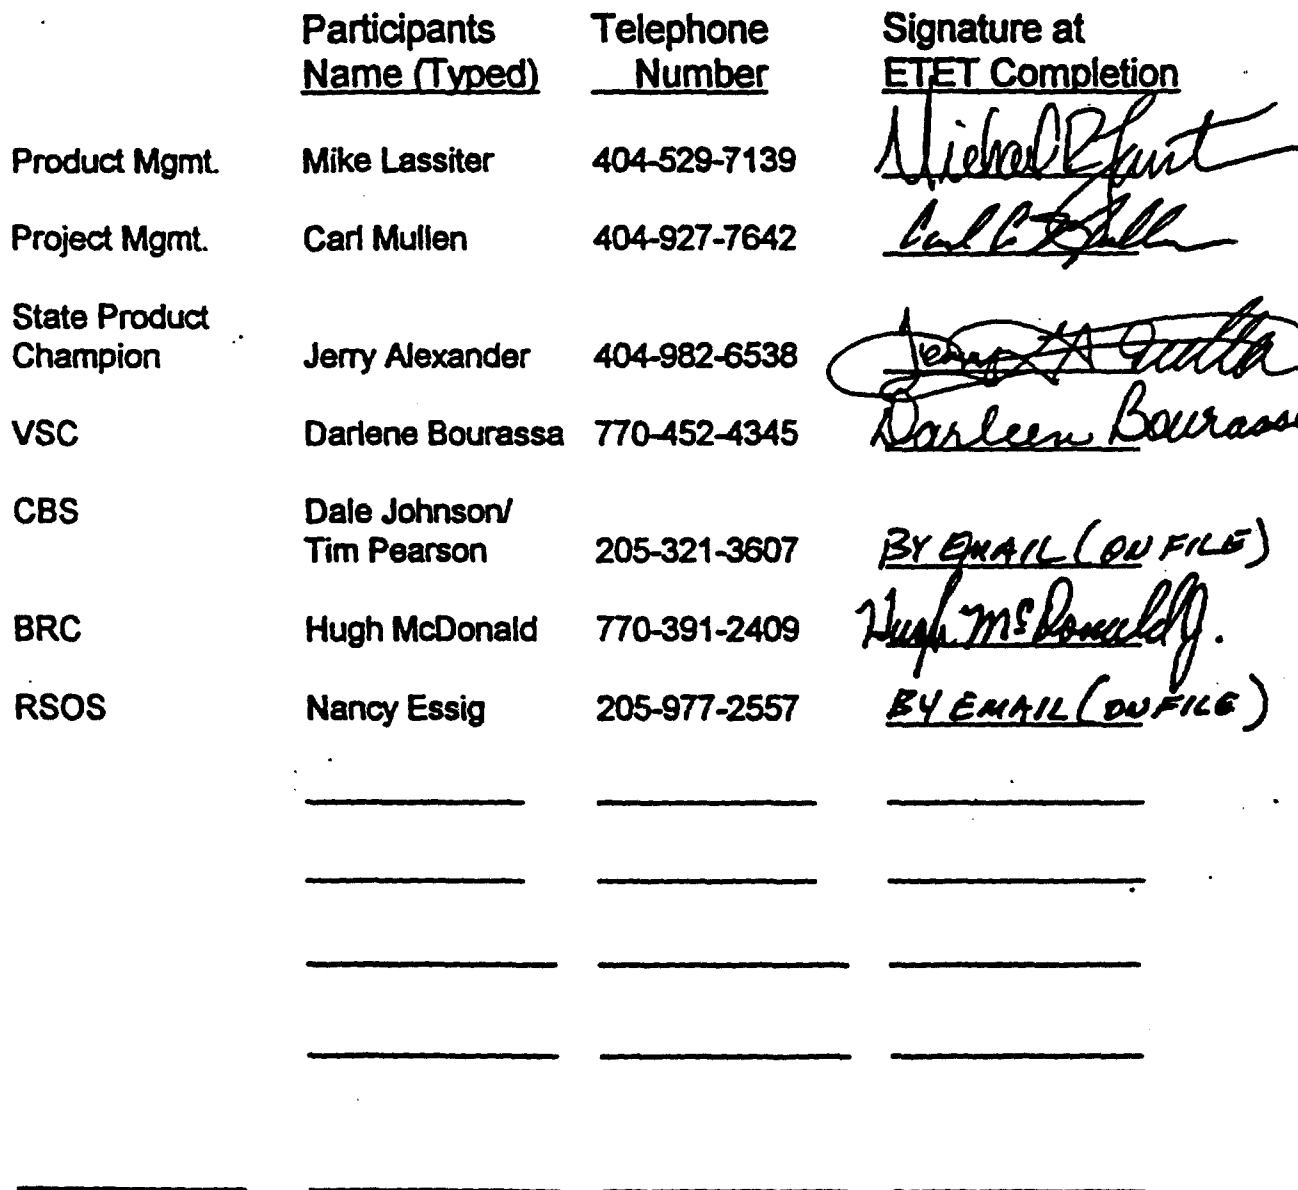 Participants Telephone Signature at
Name (Typed) Number ETET Completion
Product Mgmt. Mike Lassiter 404-529-7139 Michael
Project Mgmt. Carl Mullen 404-927-7642 Carl C
State Product
Champion Jerry Alexander 404-982-6538 Jerry
VSC Darlene Bourassa 770-452-4345 Darleen Bourassa
CBS Dale Johnson/
Tim Pearson 205-321-3607 BY EMAIL (ON FILE)
BRC Hugh McDonald 770-391-2409 Hugh McDonald J.
RSOS Nancy Essig 205-977-2557 BY EMAIL (ON FILE)